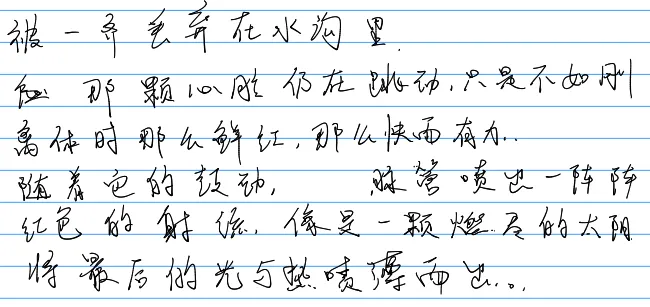 被一齐丢弃在水沟里.
那颗心脏仍在跳动,只是不如刚
离体时那么鲜红,那么快而有力..
随着它的鼓动, 脉管喷出一阵阵
红色的射流,像是一颗燃尽的太阳
将最后的光与热喷薄而出...